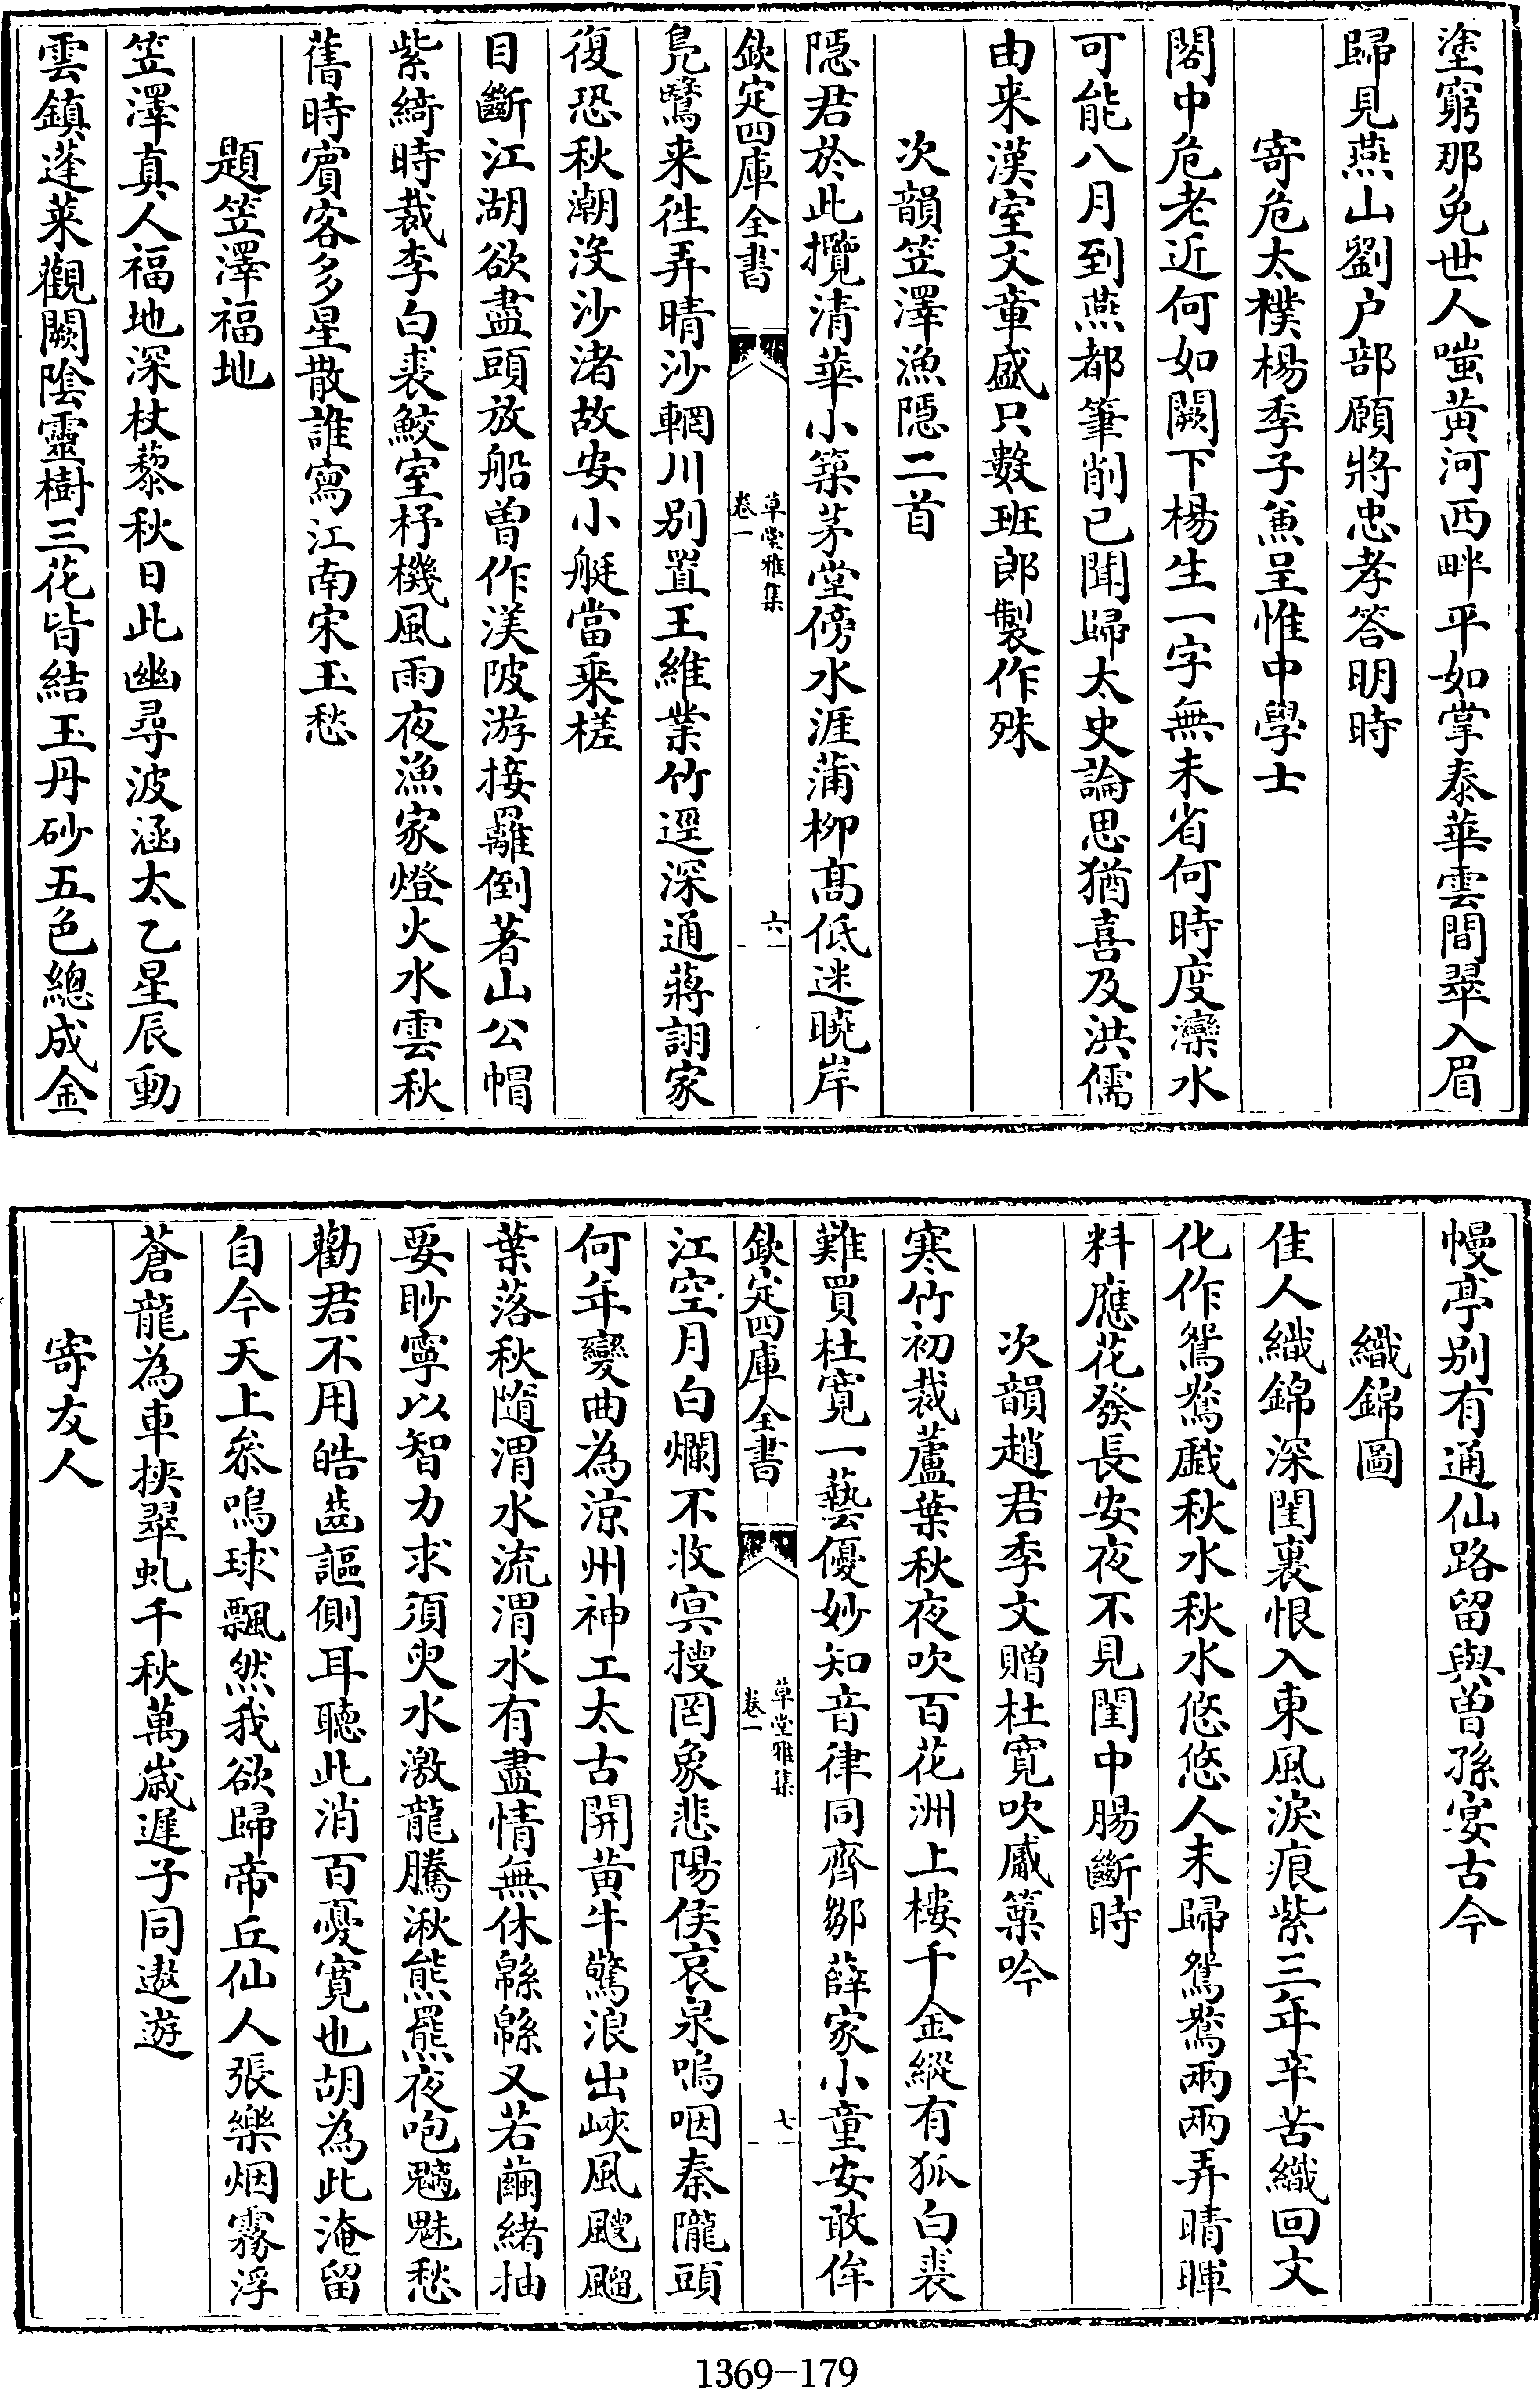 塗窮那免世人嗤黄河西畔平如掌泰華雲間翠入眉
歸見燕山劉户部願將忠孝答明時
寄危太樸楊季子兼呈惟中學士
閣中危老近何如闕下楊生一字無未省何時度灤水
可能八月到燕都筆削已聞歸太史論思猶喜及洪儒
由来漢室文章盛只數班郎製作殊
次韻笠澤漁隠二首
隠君於此攬清華小築茅堂傍水涯蒲柳髙低迷曉岸
欽定四庫全書
草堂雅集
卷一
六
鳬鷖来往弄晴沙輞川别置王維業竹逕深通蔣詡家
復恐秋潮没沙渚故安小艇當乘槎
目斷江湖欲盡頭放船曽作渼陂游接䍦倒著山公帽
紫綺時裁李白裘鮫室杼機風雨夜漁家燈火水雲秋
舊時賓客多星散誰寫江南宋玉愁
題笠澤福地
笠澤真人福地深杖藜秋日此幽尋波涵太乙星辰動
雲鎮蓬萊觀闕陰靈樹三花皆結玉丹砂五色總成金
幔亭别有通仙路留與曽孫宴古今
織錦圖
佳人織錦深閨裏恨入東風淚痕紫三年辛苦織回文
化作鴛鴦戯秋水秋水悠悠人未歸鴛鴦兩兩弄晴暉
料應花發長安夜不見閨中腸斷時
次韻趙君季文贈杜寛吹觱篥吟
寒竹初裁蘆葉秋夜吹百花洲上樓千金縱有狐白裘
難買杜寛一藝優妙知音律同齊鄒薛家小童安敢侔
欽定四庫全書
草堂雅集
卷一
七
江空月白爛不收㝠搜罔象悲陽侯哀泉嗚咽秦隴頭
何年變曲為涼州神工太古開黄牛驚浪出峽風颼飀
葉落秋隨渭水流渭水有盡情無休緜緜又若繭緒抽
要眇寧以智力求須臾水激龍騰湫熊羆夜咆魑魅愁
勸君不用皓齒謳側耳聽此消百憂寛也胡為此淹留
自今天上叅鳴球飄然我欲歸帝丘仙人張樂烟霧浮
蒼龍為車挾翠虬千秋萬歳遲子同遨遊
寄友人
1369-179